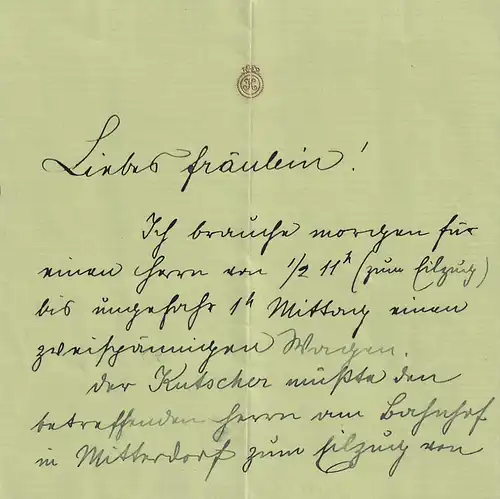 Liebes Fräulein!
Ich brauche morgen für
einen Herrn von 1/2 11h (zum Eilzug)
bis ungefähr 1h Mittag einen
zweispännigen Wagen.
Der Kutscher müßte den
betreffenden Herrn am Bahnhof
in Mitterdorf zum Eilzug von